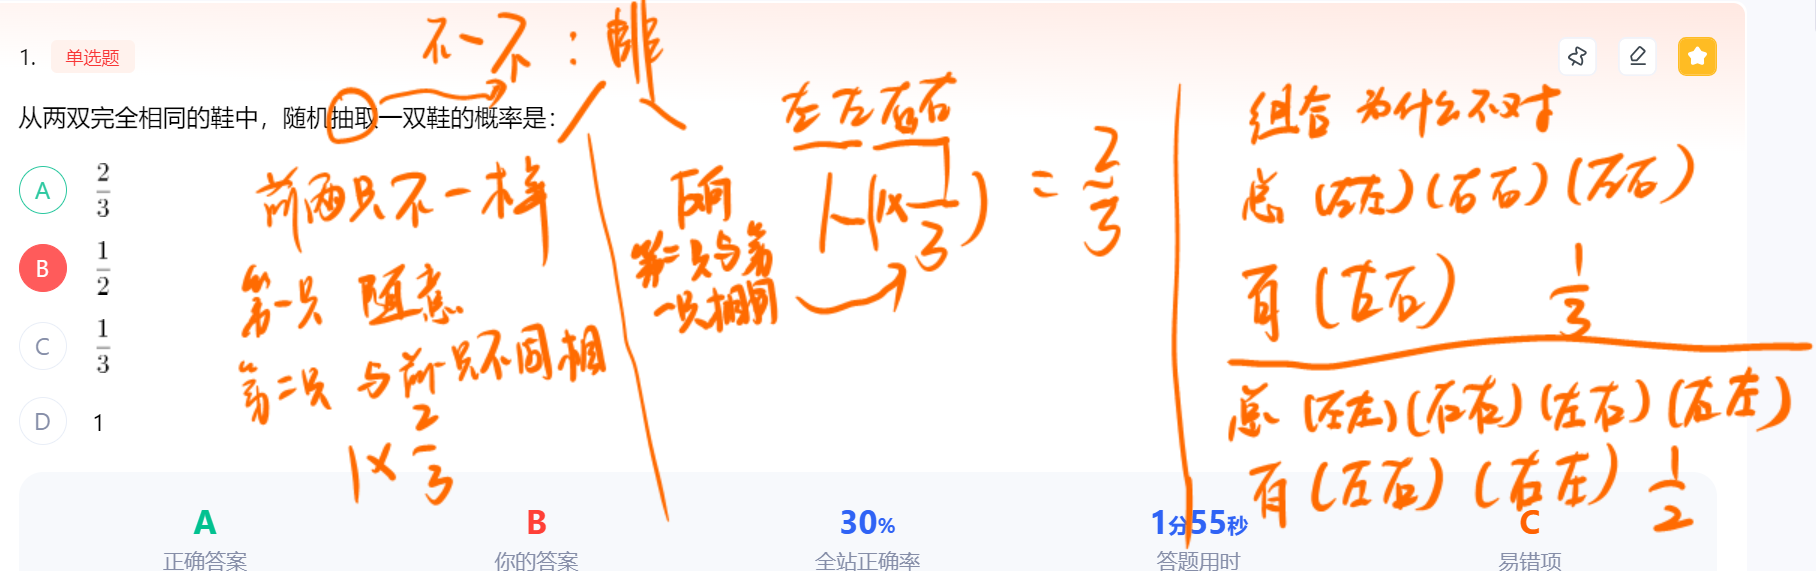 不一不：排
1. 单选题
从两双完全相同的鞋中，随机抽取一双鞋的概率是：
A 2/3
B 1/2
C 1/3
D 1
前两只不一样
第一只 随意
第二只 与前一只不同相
1×2/3
反向
第二只与第
一只相同
左左右右
1-(1×1/3) = 2/3
组合 为什么不对
总 (左左)(右右)(左右)
有 (左右) 1/3
总 (左左)(右右)(左右)(右左)
有 (左右) (右左) 1/2
A
正确答案
B
你的答案
30%
全站正确率
1分55秒
答题用时
C
易错项